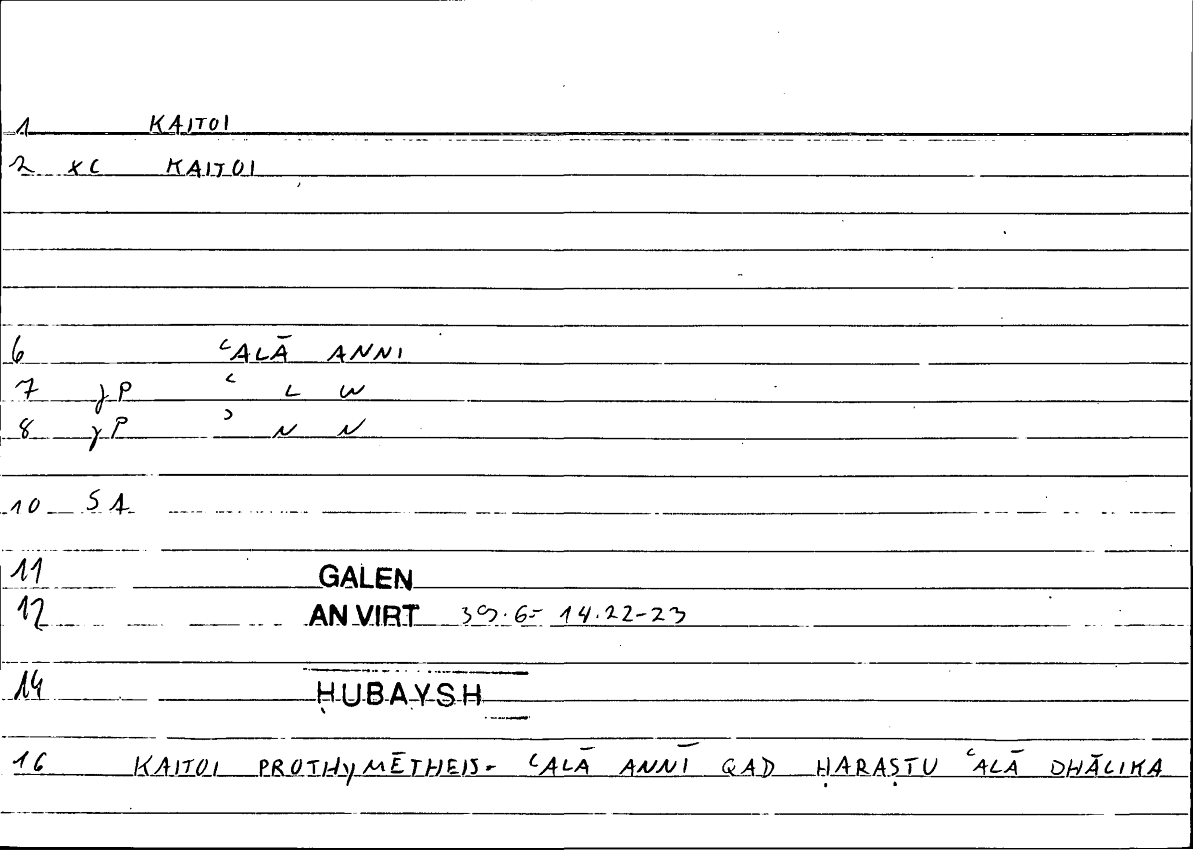 1 KAITOI
2 XC KAITOI
6 ʿALĀ ANNI
7 γP ʿ L W
8 γP ʾ N N
10 SA
11 GALEN
12 AN VIRT 39.6- 14.22-23
14 ḤUBAYSH
16 KAITOI PROTHYMĒTHEIS- ʿALĀ ANNĪ QAD ḤARAṢTU ʿALĀ DHĀLIKA